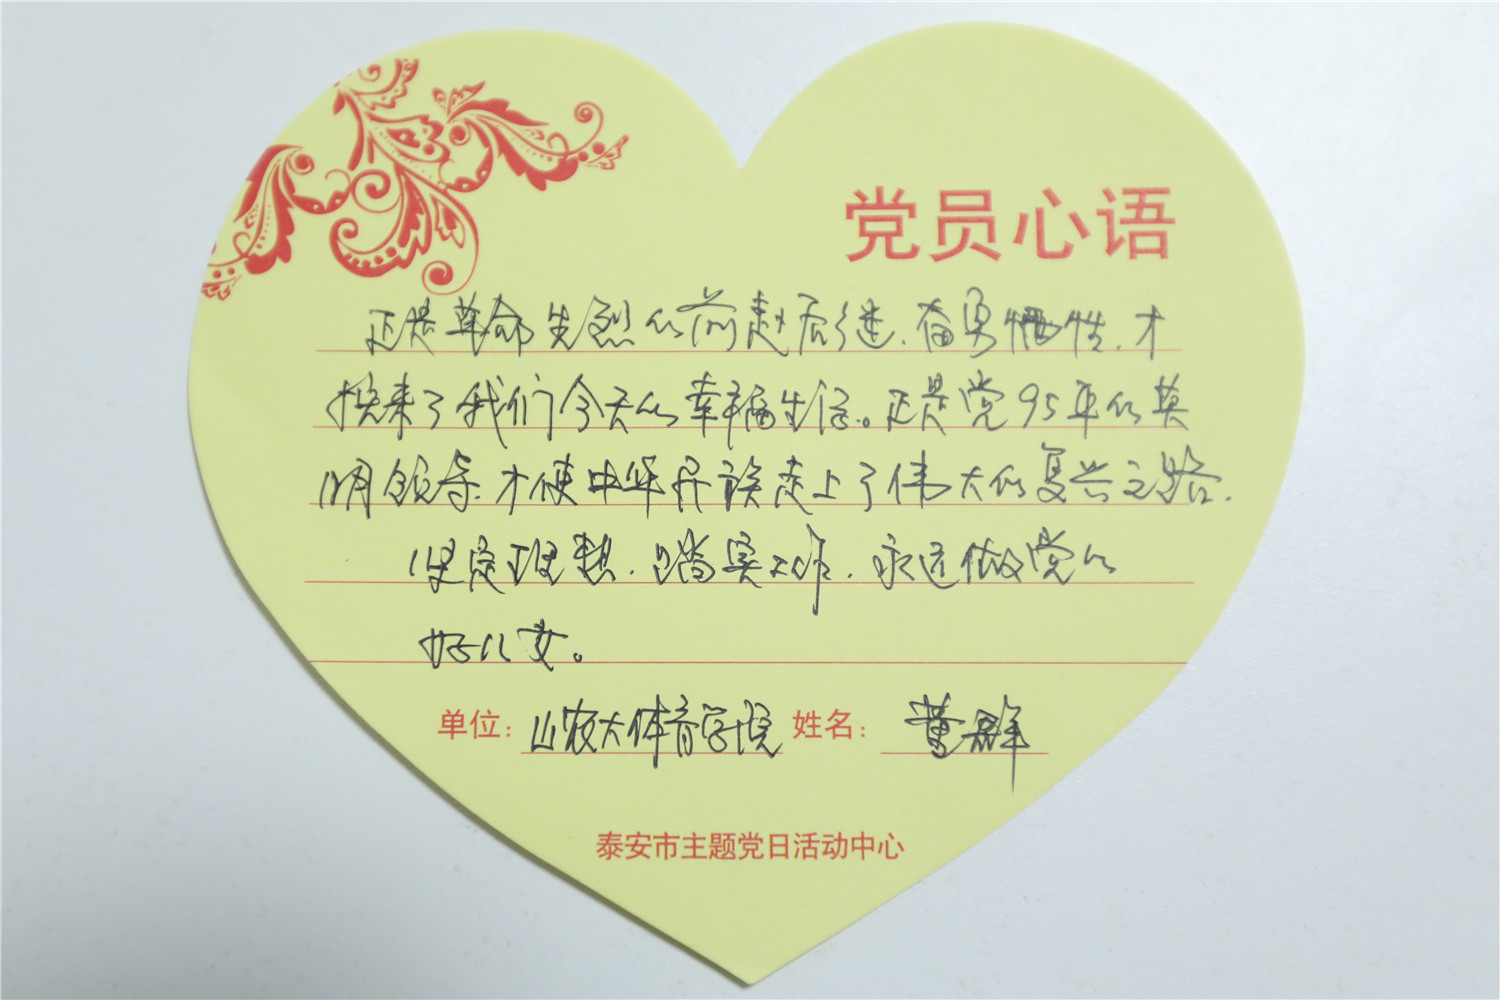 党员心语
正是革命先烈的前赴后继、奋勇牺牲,才
换来了我们今天的幸福生活。正是党95年的英
明领导才使中华民族走上了伟大的复兴之路.
坚定理想、踏实工作、永远做党的
好儿女。
单位:山农大体育学院 姓名:董群
泰安市主题党日活动中心